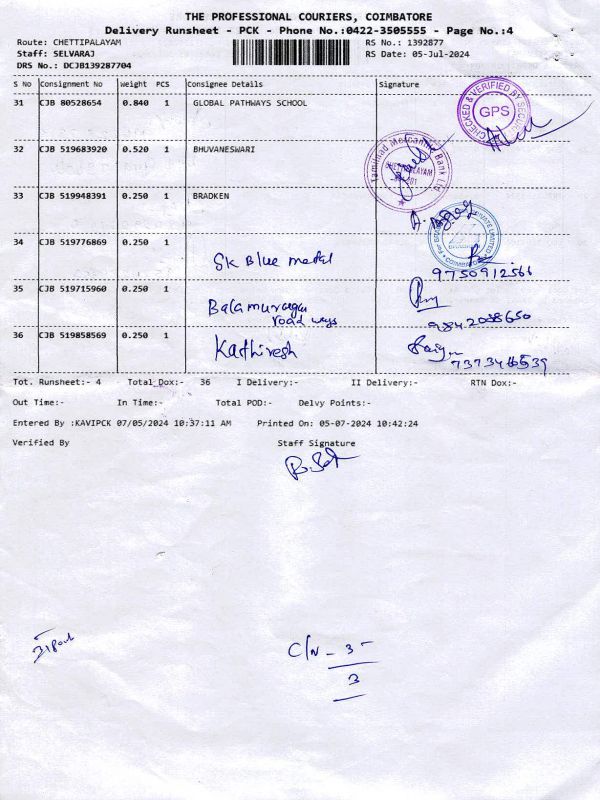 THE PROFESSIONAL COURIERS, COIMBATORE
Delivery Runsheet - PCK - Phone No.:0422-3505555 - Page No.:4
Route: CHETTIPALAYAM RS No.: 1392877
Staff: SELVARAJ RS Date: 05-Jul-2024
DRS No.: DCJB139287704
S No Consignment No Weight PCS Consignee Details Signature
31 CJB 80528654 0.840 1 GLOBAL PATHWAYS SCHOOL
CHECKED & VERIFIED BY SECURITY
GPS
32 CJB 519683920 0.520 1 BHUVANESWARI
Tamilnad Mercantile Bank Ltd.
CHETTIPALAYAM
33 CJB 519948391 0.250 1 BRADKEN
34 CJB 519776869 0.250 1 SK Blue metal
9750912566
35 CJB 519715960 0.250 1 Balamurugan
road ways
9842038650
36 CJB 519858569 0.250 1 Kathiresh
Tot. Runsheet:- 4 Total Dox:- 36 I Delivery:- II Delivery:- RTN Dox:-
Out Time:- In Time:- Total POD:- Delvy Points:-
Entered By :KAVIPCK 07/05/2024 10:37:11 AM Printed On: 05-07-2024 10:42:24
Verified By Staff Signature
C/N - 3 -
3